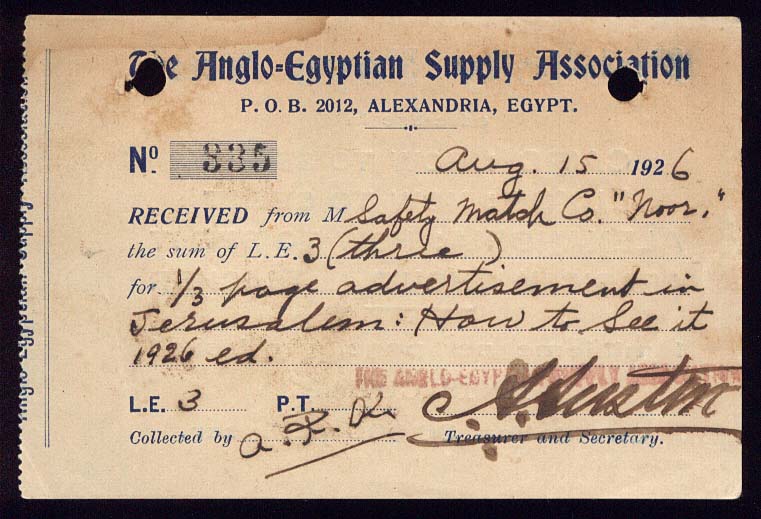 The Anglo=Egyptian Supply Association
P. O. B. 2012, ALEXANDRIA, EGYPT.
Nº 335 Aug. 15 1926
RECEIVED from M Safety Match Co. "Noor,"
the sum of L. E. 3 (three)
for 1/3 page advertisement in
Jerusalem: How to See it
1926 ed.
THE ANGLO-EGYPTIAN SUPPLY ASSOCIATION
L.E. 3 P.T.
Collected by Treasurer and Secretary.